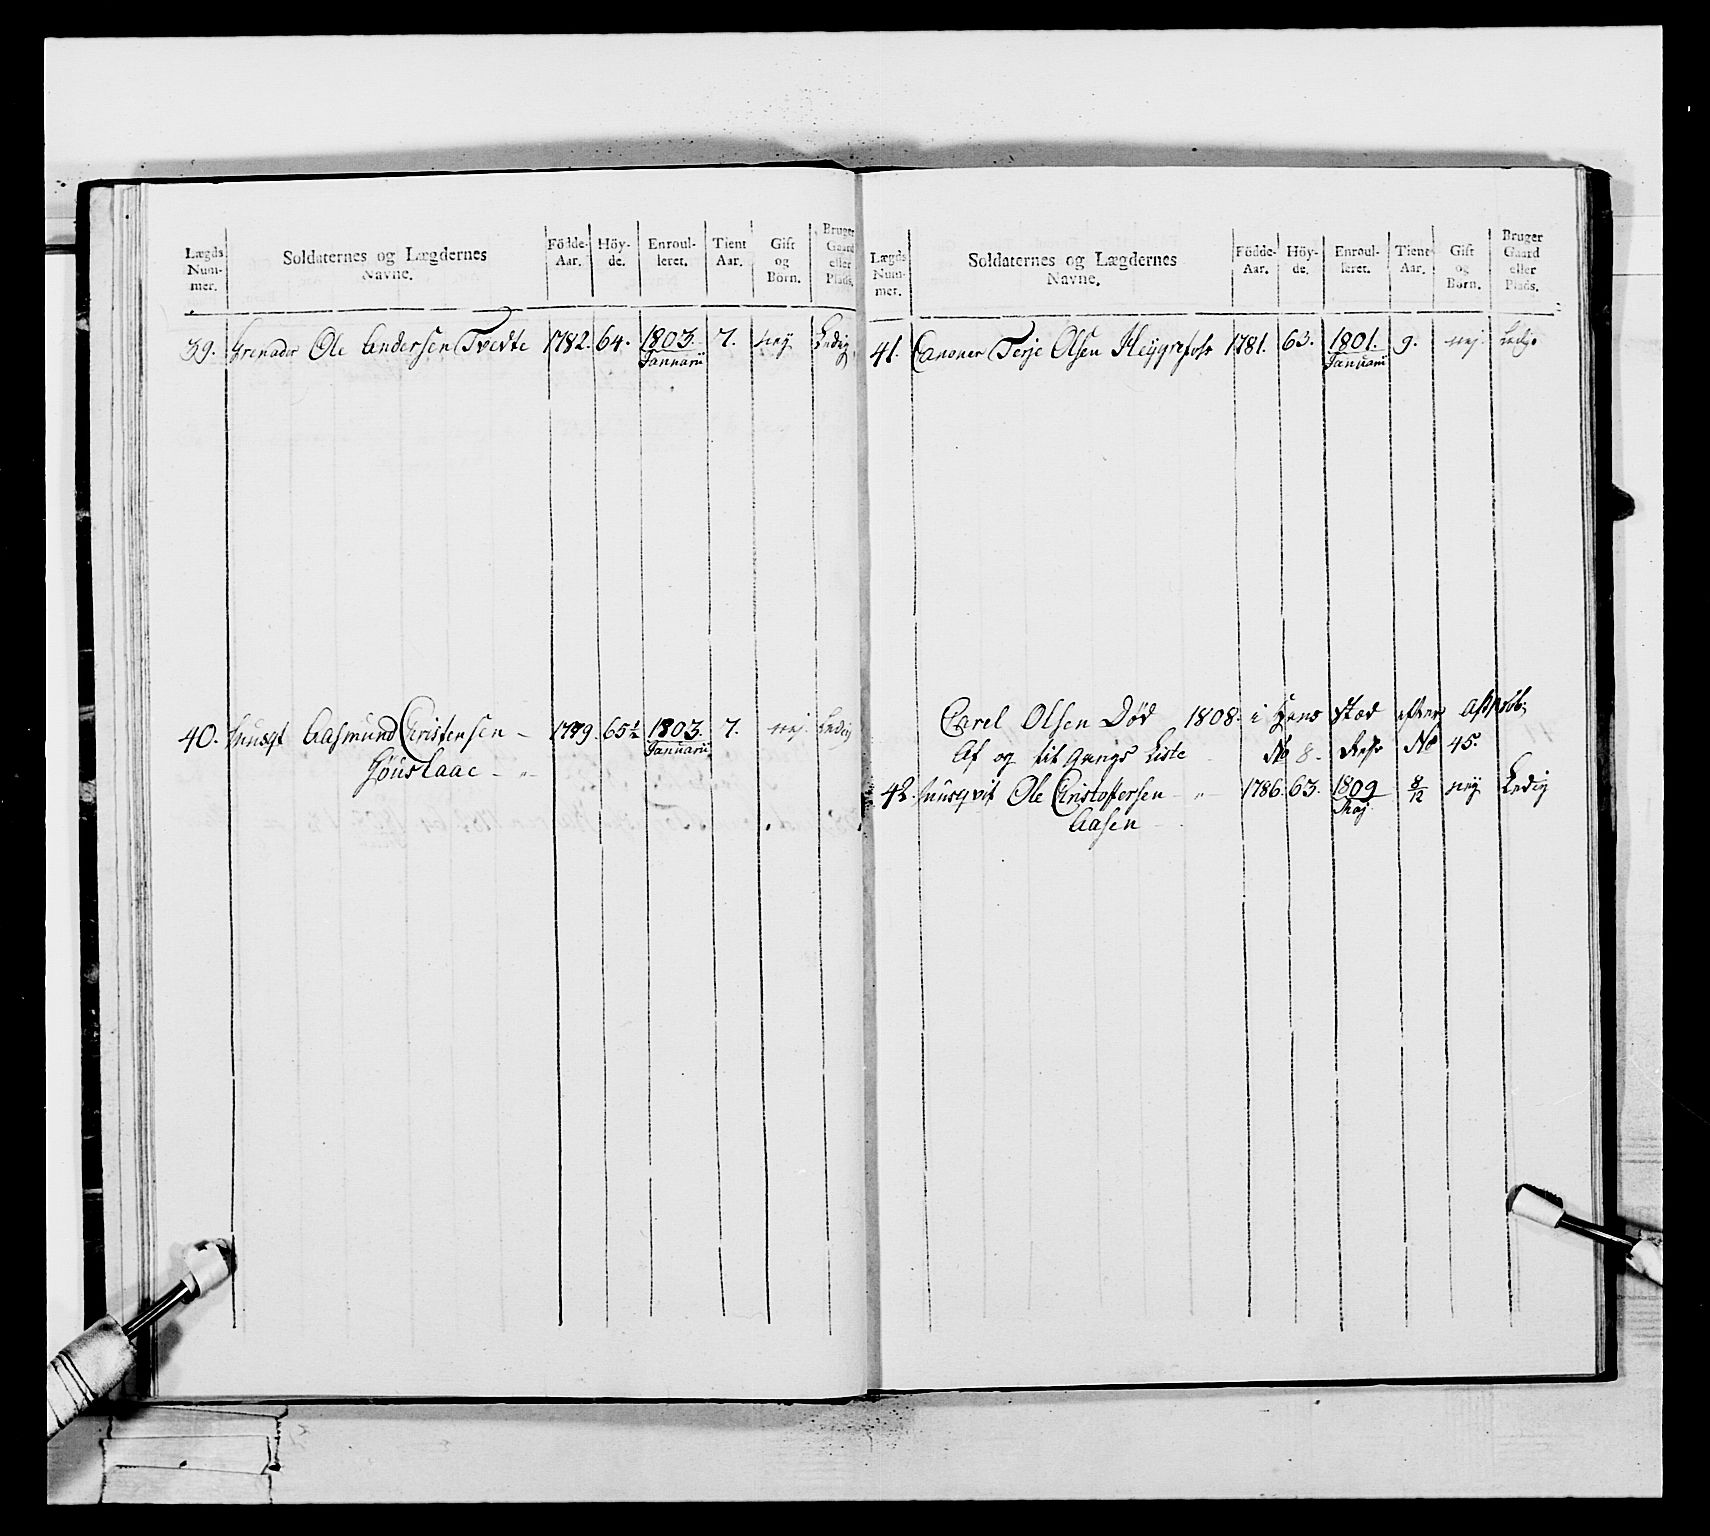 Lægds Num- mer. Soldaternes og Lægdernes Navne. Födde- Aar. Höy- de. Enroul- leret. Tient Aar. Gift og Börn. Bruger Gaard eller Plads.
39. Grenader Ole Andersen Tvedte 1782. 64. 1803. Januarii 7. nej Ledig
40. Musqt Aasmund Christensen 1779. 65½ 1803. Januarii 7. nej. Ledig
Lægds Num- mer. Soldaternes og Lægdernes Navne. Födde- Aar. Höy- de. Enroul- leret. Tient Aar. Gift og Börn. Bruger Gaard eller Plads.
41. Canoner Terje Olsen 1781. 63. 1801. Januarii 9. nej. Ledig
Carel Olsen Död 1808. i Hans Stæd efter Approb:
Af og til Gangs Liste No 8. No 45.
42. Musqvit Ole Christoffersen 1786. 63. 1809 Maj 8/12 nej Ledig
Aasen